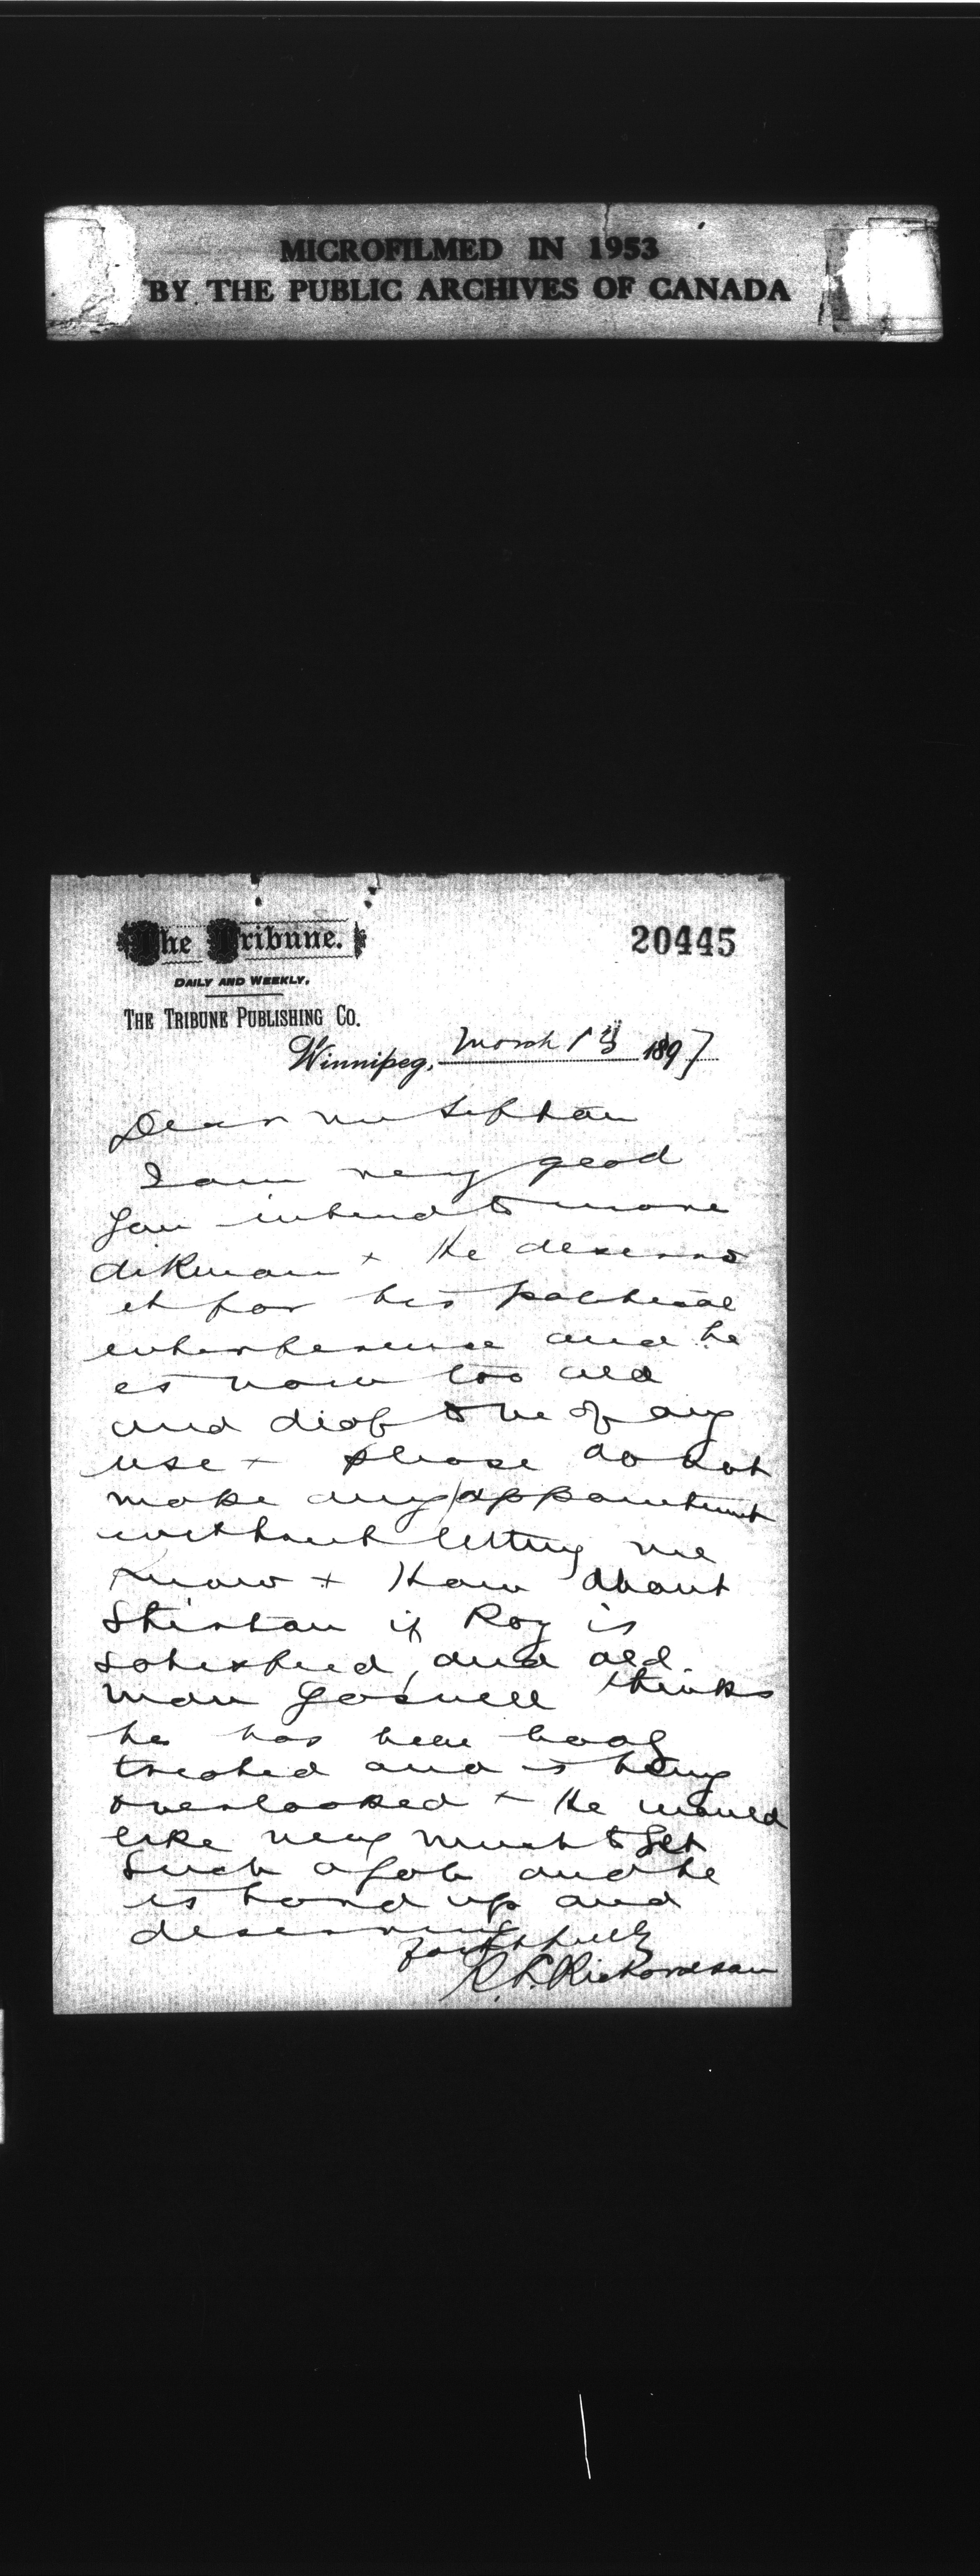 MICROFILMED IN 1953
BY THE PUBLIC ARCHIVES OF CANADA
The Tribune.
20445
DAILY AND WEEKLY,
THE TRIBUNE PUBLISHING CO.
Winnipeg, March 13 1897
Dear Mr Sifton
I am very glad
you intend to move
+ He deserves
it for his political
interference and he
is now too old
and deaf to be of any
use + please do not
make any appointment
without letting me
know + How about
if Roy is
satisfied, and old
man thinks
he has been badly
treated and is being
overlooked + He would
like very much to get
such a job and he
is hard up and
deserving
faithfully
R.L. Richardson